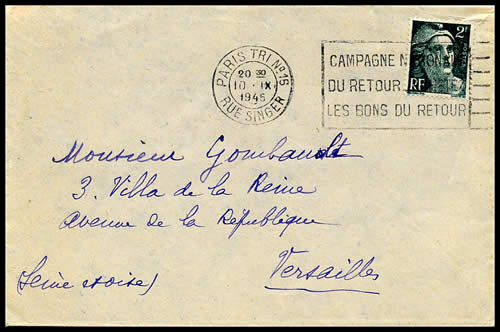 PARIS TRI Nº 16
20 30
10 · IX
1945
RUE SINGER
2F
RF
CAMPAGNE N
DU RETOUR
LES BONS DU RETOUR
Monsieur Gombault
3. Villa de la Reine
Avenue de la République
Versailles
(Seine et oise)